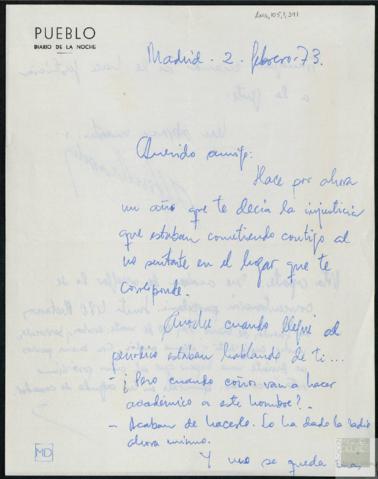 PUEBLO
DIARIO DE LA NOCHE
Madrid - 2 - febrero - 73.
Querido amigo:
Hace por ahora
un año que te decía la injusticia
que estaban cometiendo contigo al
no sentarte en el lugar que te
corresponde.
Anoche cuando llegué al
periódico estaban hablando de ti...
¿Pero cuando coños van a hacer
académico a este hombre? -
- Acaban de hacerlo. Lo ha dado la radio
ahora mismo.
Y uno se queda
MD